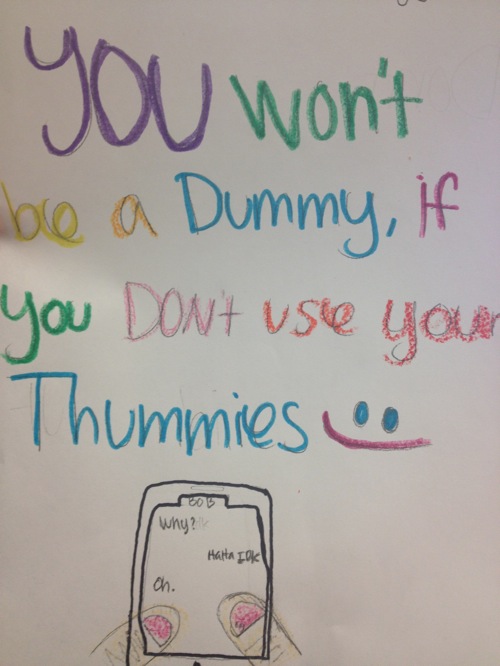 YOU won't
be a Dummy, if
you DON't use your
Thummies
BOB
Why?
HaHa IDK
Oh.